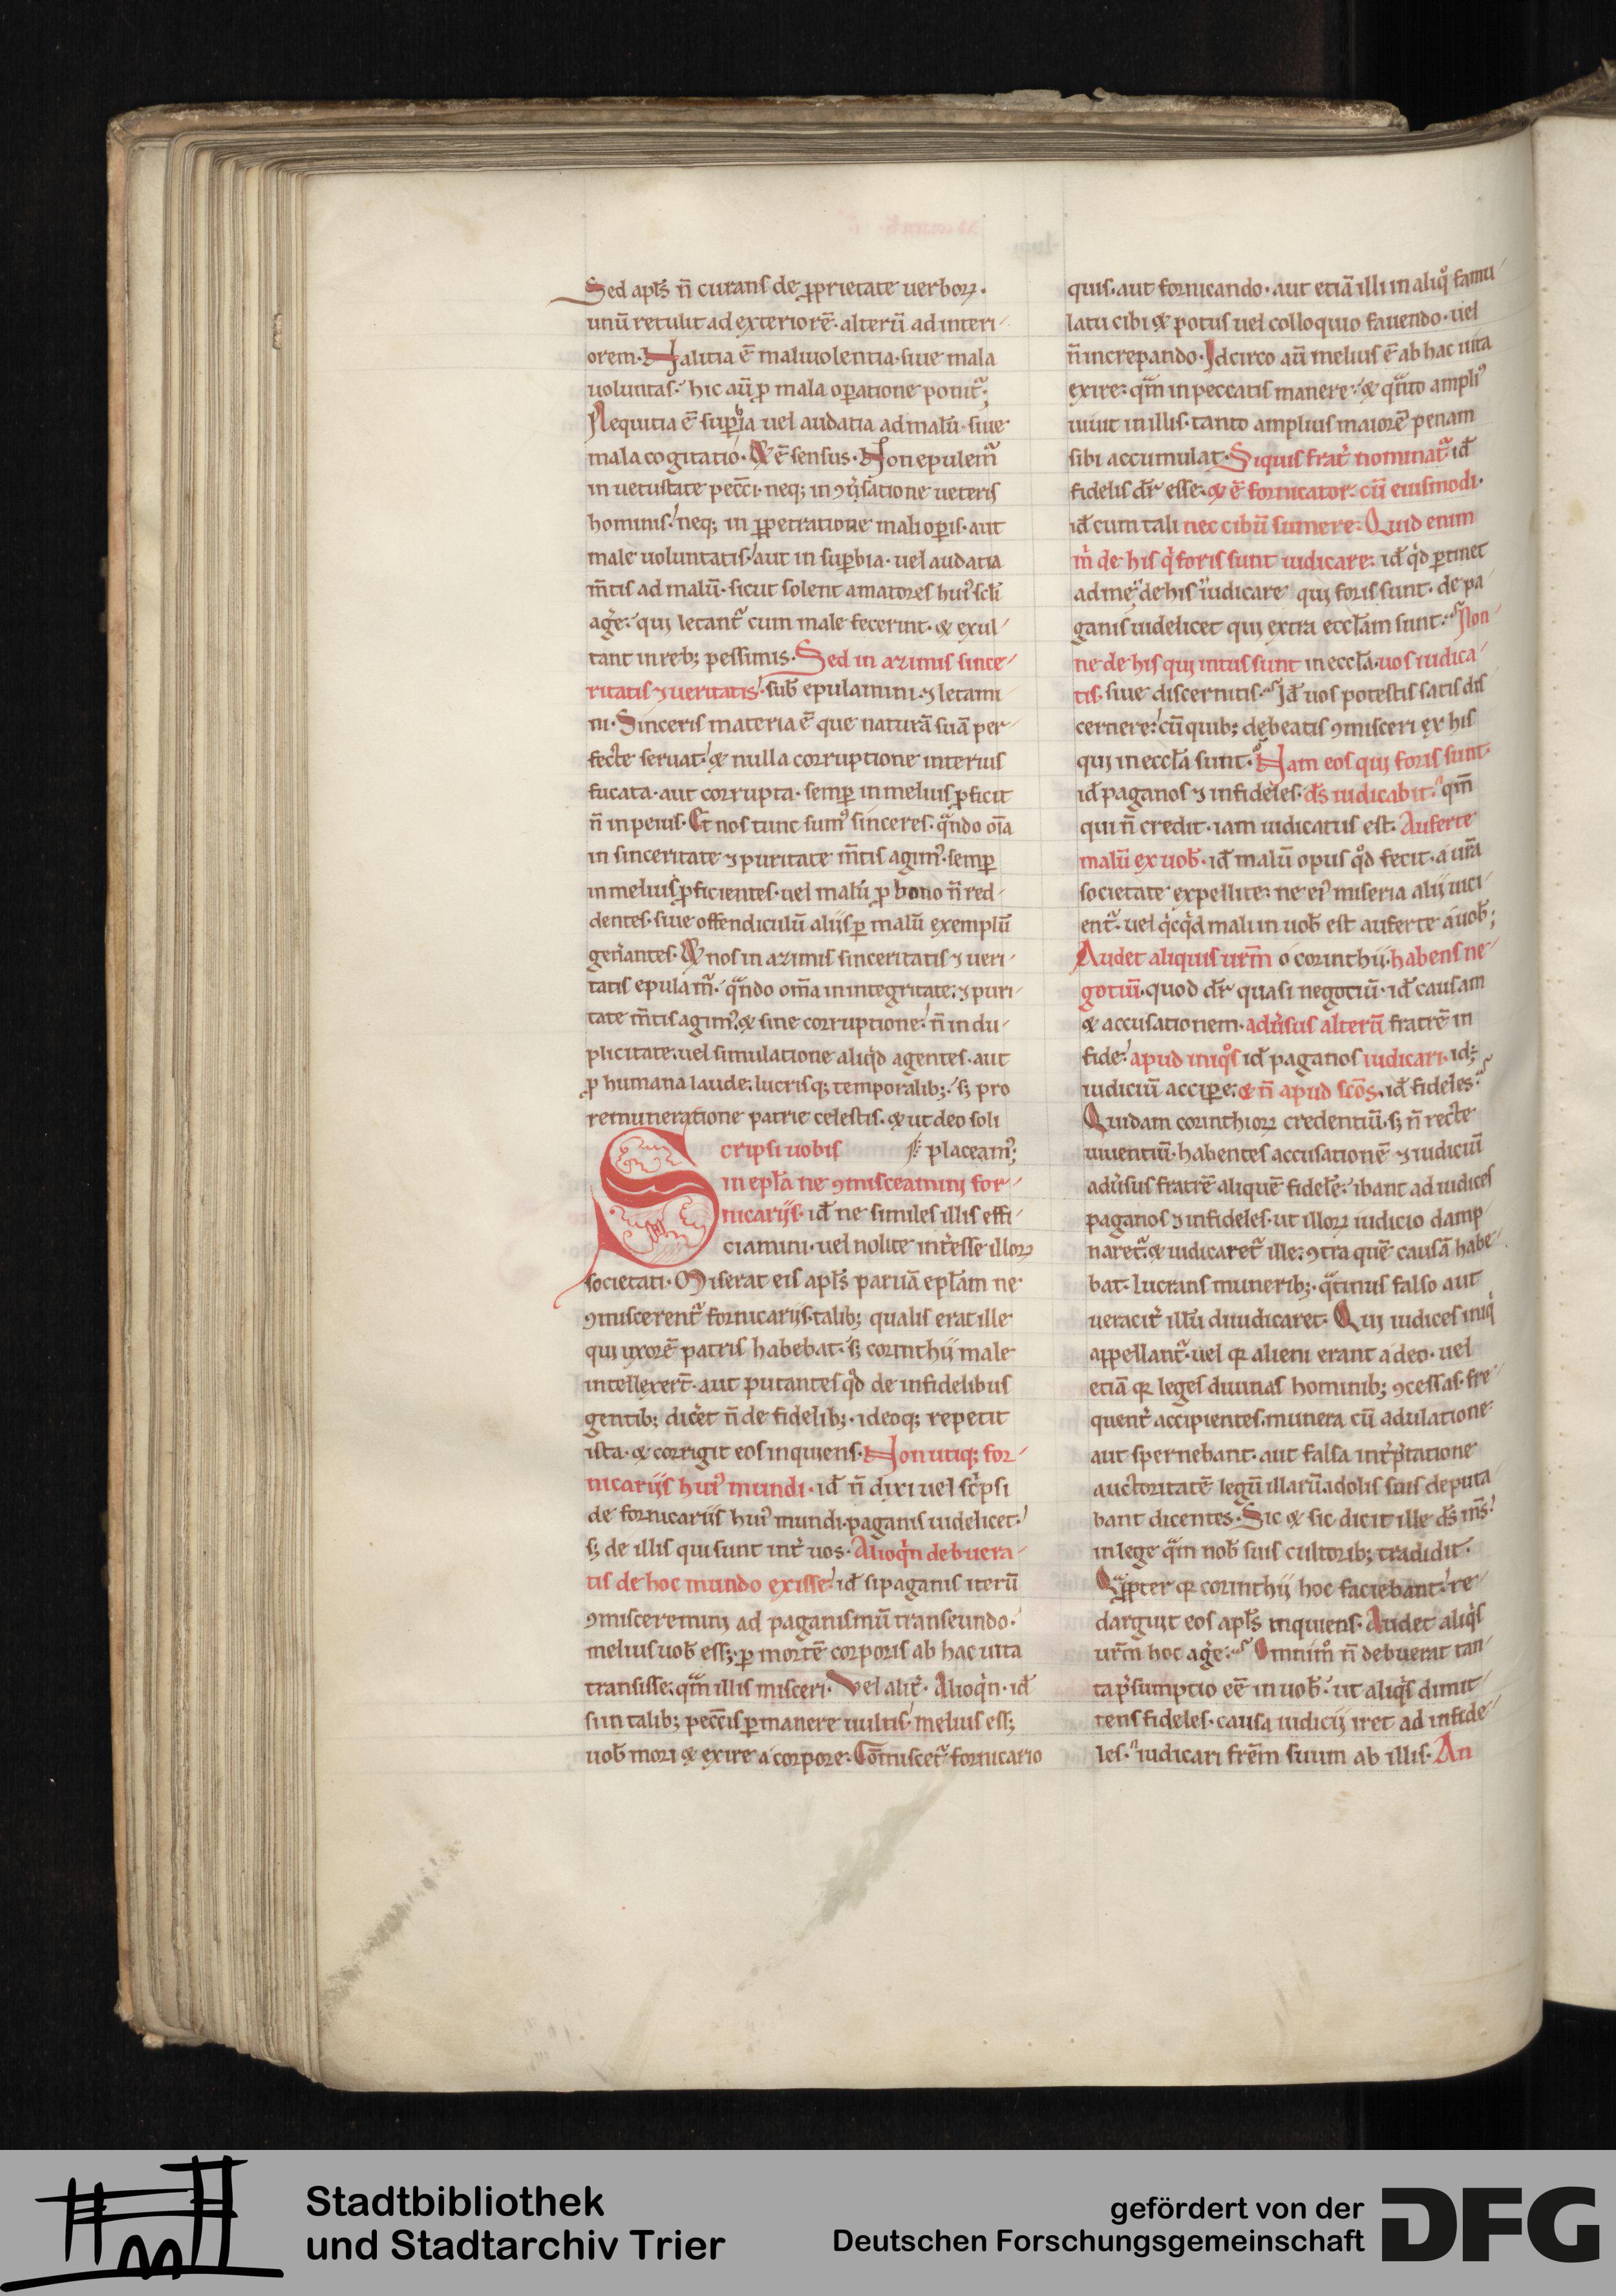 Sed apl̅s n̅ curans de p̱prietate uerboꝝ.
unū retulit ad exteriorē. alterū ad interi-
orem. Malitia ē maliuolentia. siue mala
uoluntas. hic aū p̱ mala oꝑatione ponit᷑;
Nequitia ē suꝑbia uel audatia ad malū. siue
mala cogitatio. & ē sensus. Non epulem᷑
in uetustate pecc̅i. neq; in ꝯuˀsatione ueteris
hominis. neq; in ꝑpetratione mali oꝑis. aut
male uoluntatis. aut in suꝑbia. uel audatia
m̅tis ad malū. sicut solent amatores huiꝰ sc̅li
agˀe. qui letant᷑ cum male fecerint. & exul-
tant in reb; pessimis. Sed in azimis since-
ritatis ⁊ ueritatis. sub̅ epulamini. ⁊ letami-
ni. Sinceris materia ē que naturā suā per-
fecte seruat. & nulla corruptione interius
fucata. aut corrupta. semꝑ in melius ꝓficit
n̅ in peius. Et nos tunc sumꝰ sinceres. qᷓndo oīa
in sinceritate ⁊ puritate m̅tis agimꝰ. semꝑ
in melius ꝓficientes. uel malū ꝓ bono n̅ red-
dentes. siue offendiculū aliis ꝑ malū exemplū
genˀantes. & nos in azimis sinceritatis ⁊ ueri-
tatis epulam᷑. qᷓndo om̅a in integritate. ⁊ puri-
tate m̅tis agimꝰ. & sine corruptione. n̅ in du-
plicitate. uel simulatione aliqͥd agentes. aut
ꝓ humana laude. lucrisq; temporalib;. s; pro
remuneratione patrie celestis. & ut deo soli
placeamꝰ;
Scripsi uobis
in epl̅a ne ꝯmisceamini for-
nicariis. id̅ ne similes illis effi-
ciamini. uel nolite intˀesse illoꝝ
societati. Miserat eis apl̅s paruā epl̅am ne
ꝯmiscerent᷑ fornicariis. talib; qualis erat ille
qui uxorē patris habebat. s; corinthii male
intellexer̅t. aut putantes qͦd de infidelibus
gentib; dicˀet n̅ de fidelib;. ideoq; repetit
ista. & corrigit eos inquiens. Non utiq; for-
nicariis huiꝰ mundi. id̅ n̅ dixi uel scͥpsi
de fornicariis huiꝰ mundi. paganis uidelicet.
s; de illis qui sunt intˀ uos. Alioqͥn debuera-
tis de hoc mundo exisse. id̅ si paganis iterū
ꝯmisceremini ad paganismū transeundo.
melius uob̅ ess;. ꝑ mortē corporis ab hac uita
transisse. qᷓm illis misceri. Vel alitˀ. Alioqͥn. id̅
si in talib; pecc̅is ꝑmanere uultis. melius ess;
uob̅ mori & exire a corpore. Cōmiscet᷑ fornicario
quis. aut fornicando. aut etiā illi in aliqͦ famu-
latu cibi & potus uel colloquio fauendo. uel
n̅ increpando. Idcirco aū melius ē ab hac uita
exire. qᷓm in peccatis manere. & qᷓnto ampliꝰ
uiuit in illis. tanto amplius maiorē penam
sibi accumulat. Siquis fratˀ nominat᷑ id̅
fidelis dr̅ esse. & ē fornicator. cū eiusmodi.
id̅ cum tali nec cibū sumere. Quid enim
mͥ de his qͥ foris sunt iudicare. id̅ qͥd ꝑtinet
ad me de his iudicare qui foris sunt. de pa-
ganis uidelicet qui extra eccl̅am sunt. Non-
ne de his qui intus sunt in eccl̅a. uos iudica-
tis. siue discernitis. Id̅ uos potestis satis dis
cernere. cū quib; debeatis ꝯmisceri ex his
qui in eccl̅a sunt. Nam eos qui foris sunt.
id̅ paganos ⁊ infideles. ds̅ iudicabit. qm̅
qui n̅ credit. iam iudicatus est. Auferte
malū ex uob̅. id̅ malū opus qͦd fecit. a ur̅a
societate expellite. ne eiꝰ miseria alii uici-
ent᷑. uel qͥcqͥd mali in uob̅ est auferte a uob̅;
Audet aliquis ur̅m o corinthii. habens ne-
gotiū. quod dr̅ quasi negotiū. id̅ causam
& accusationem. aduˀsus alterū fratrē in
fide. apud iniqͦs id̅ paganos iudicari. id̅
iudiciū acciꝑe. & n̅ apud sc̅os. id̅ fideles.
Quidam corinthioꝝ credentiū. s; n̅ recte
uiuentiū. habentes accusationē ⁊ iudiciū
aduˀsus fratrē aliquē fidelē. ibant ad iudices
paganos ⁊ infideles. ut illoꝝ iudicio damp-
naret᷑. & iudicaret᷑ ille. ꝯtra quē causā habe-
bat. lucrans munerib;. qᷓtinus falso aut
ueracitˀ illū diiudicaret. Qui iudices iniqͥ
appellant᷑. uel qꝛ alieni erant a deo. uel
etiā qꝛ leges diuinas hominib; ꝯcessas. fre-
quentˀ accipientes. munera cū adulatione.
aut spernebant. aut falsa intˀpͥtatione
auctoritatē legū illarū. idolis suis deputa-
bant dicentes. Sic & sic dicit ille ds̅ in̅s.
in lege qᷓm nob̅ suis cultorib; tradidit.
Qᷓꝓpter qꝛ corinthii hoc faciebant. re-
darguit eos apl̅s inquiens. Audet aliqͥs
ur̅m hoc agˀe. Omnimͦ n̅ debuerat tan-
ta pˀsumptio eē in uob̅. ut aliqͥs dimit-
tens fideles. causa iudicii iret ad infide-
les. iudicari frē̅m suum ab illis. An
Stadtbibliothek
und Stadtarchiv Trier
gefördert von der
Deutschen Forschungsgemeinschaft
DFG